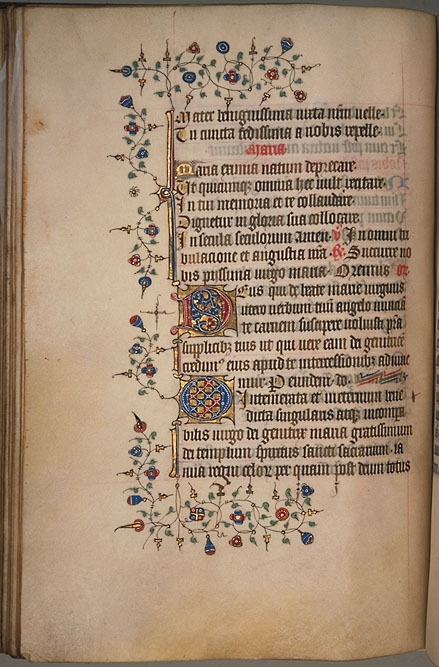 Mater benignissima iuxta nostrum velle
Tu cuncta fedissima a nobis repelle
Maria
Maria eximia natum deprecare
Te quicumque omnia hec vult
In tui memoria et te collaudare
Dignetur in gloria sua collocare
In secula seculorum amen v In omni tri
bulacione et angustia nra R Succurre no
bis piissima virgo maria Oremus or
Deus qui de beate marie virginis
utero verbum tuum angelo nuncia
te carnem suscipere voluisti psta
supplicibz tuis ut qui vere eam dei genitrice
credim eius apud te intercessionibz adiuve
mur P eundem do
O Intemerata et ineternum bene
dicta singularis atqz incompa
bilis virgo dei genitrix maria gratissimum
dei templum spiritus sancti sacrarium ia
nua regni celor per quam post deum totus